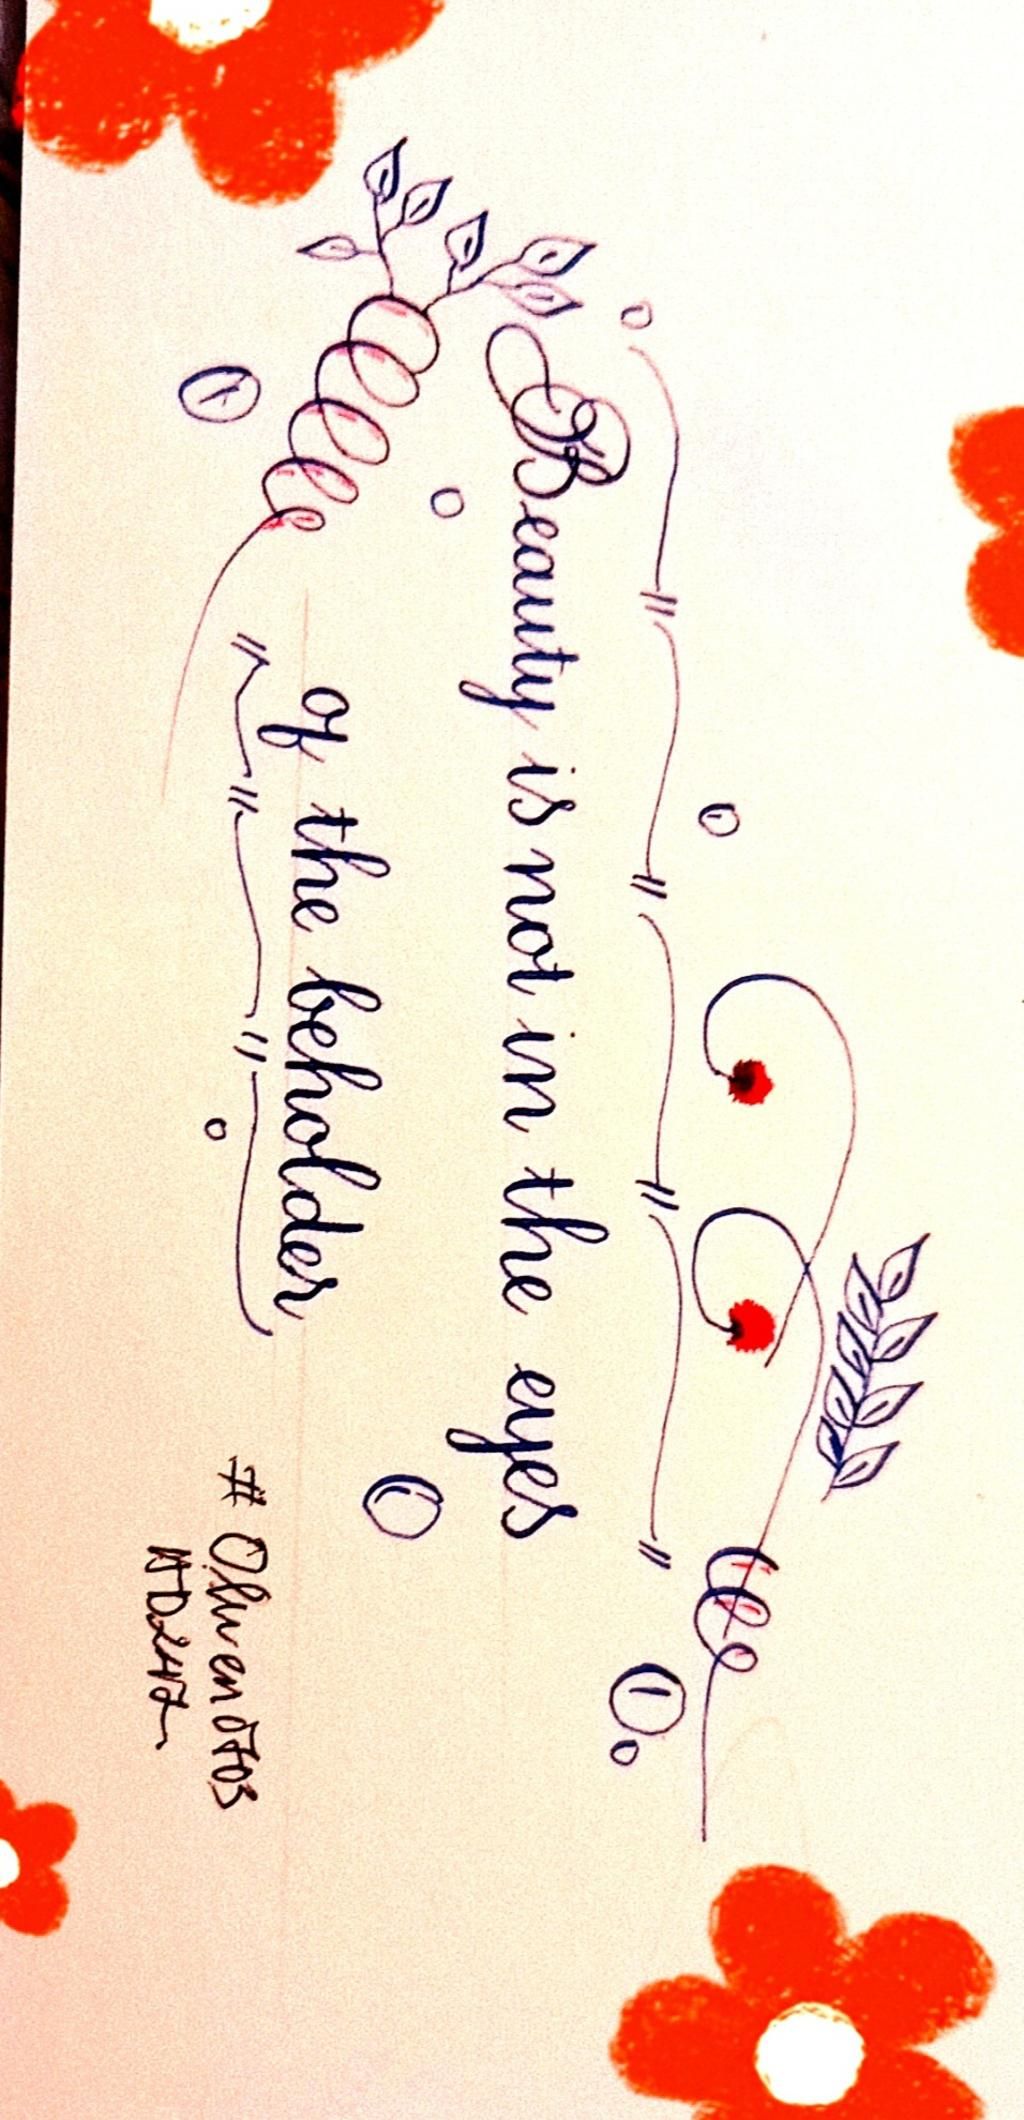 Beauty is not in the eyes
of the beholder